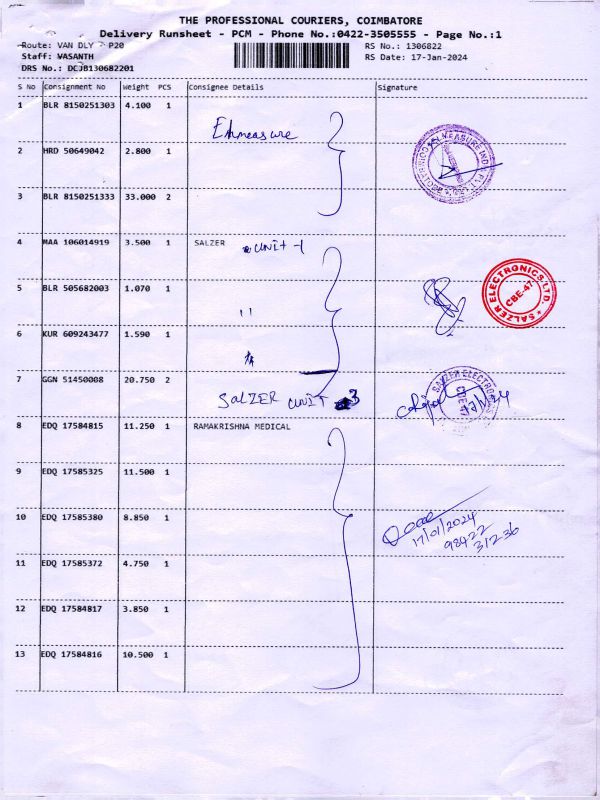 THE PROFESSIONAL COURIERS, COIMBATORE
Delivery Runsheet - PCM - Phone No.:0422-3505555 - Page No.:1
Route: VAN DLY - P20
RS No.: 1306822
Staff: WASANTH
RS Date: 17-Jan-2024
DRS No.: DCJ8130682201
S No Consignment No Weight PCS Consignee Details Signature
1 BLR 8150251303 4.100 1
2 HRD 50649042 2.800 1
3 BLR 8150251333 33.000 2
4 MAA 106014919 3.500 1 SALZER UNIT-1
SALZER ELECTRONICS LTD.
CBE-47
5 BLR 505682003 1.070 1 11
6 KUR 609243477 1.590 1
7 GGN 51450008 20.750 2 SALZER UNIT 3
SALZER ELECTRONICS
8 EDQ 17584815 11.250 1 RAMAKRISHNA MEDICAL
9 EDQ 17585325 11.500 1
10 EDQ 17585380 8.850 1
17/01/2024
98422
31236
11 EDQ 17585372 4.750 1
12 EDQ 17584817 3.850 1
13 EDQ 17584816 10.500 1